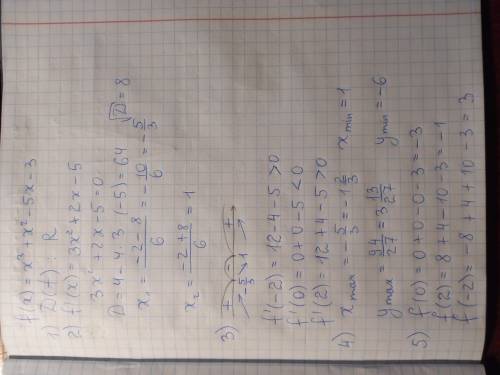 f(x) = x³ + x² - 5x - 3
1) D(f) : R
2) f'(x) = 3x² + 2x - 5
3x² + 2x - 5 = 0
D = 4 - 4·3·(-5) = 64 √D = 8
x₁ = (-2-8)/6 = -10/6 = -5/3
x₂ = (-2+8)/6 = 1
3) + - +
-5/3 1
f'(-2) = 12 - 4 - 5 > 0
f'(0) = 0 + 0 - 5 < 0
f'(2) = 12 + 4 - 5 > 0
4) x max = -5/3 = -1 2/3 x min = 1
y max = 94/27 = 3 13/27 y min = -6
5) f(0) = 0 + 0 - 0 - 3 = -3
f(2) = 8 + 4 - 10 - 3 = -1
f(-2) = -8 + 4 + 10 - 3 = 3